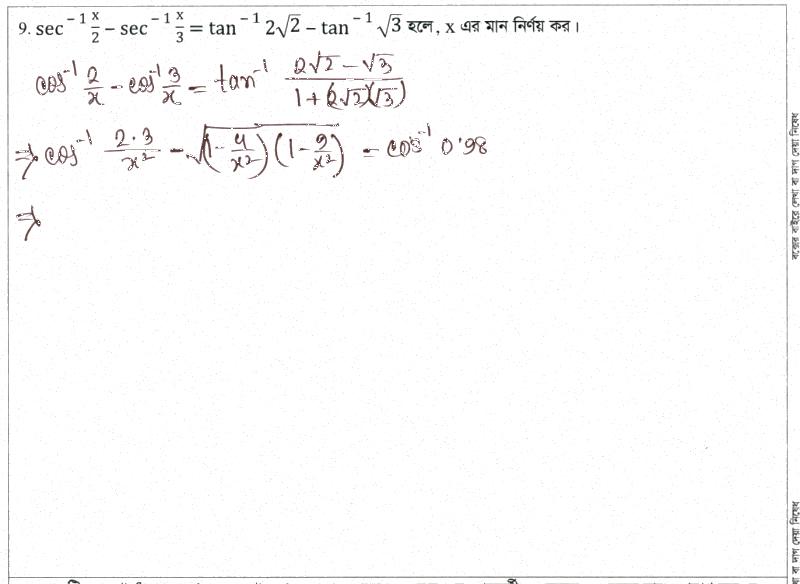 9. sec⁻¹ x/2 − sec⁻¹ x/3 = tan⁻¹ 2√2 − tan⁻¹ √3 হলে, x এর মান নির্ণয় কর।
cos⁻¹ 2/x − cos⁻¹ 3/x = tan⁻¹ (2√2 − √3)/(1 + (2√2)(√3))
⇒ cos⁻¹ 2·3/x² − √(1 − 4/x²)(1 − 9/x²) = cos⁻¹ 0.98
⇒
বক্সের বাইরে লেখা বা দাগ দেয়া নিষেধ
বা দাগ দেয়া নিষেধ